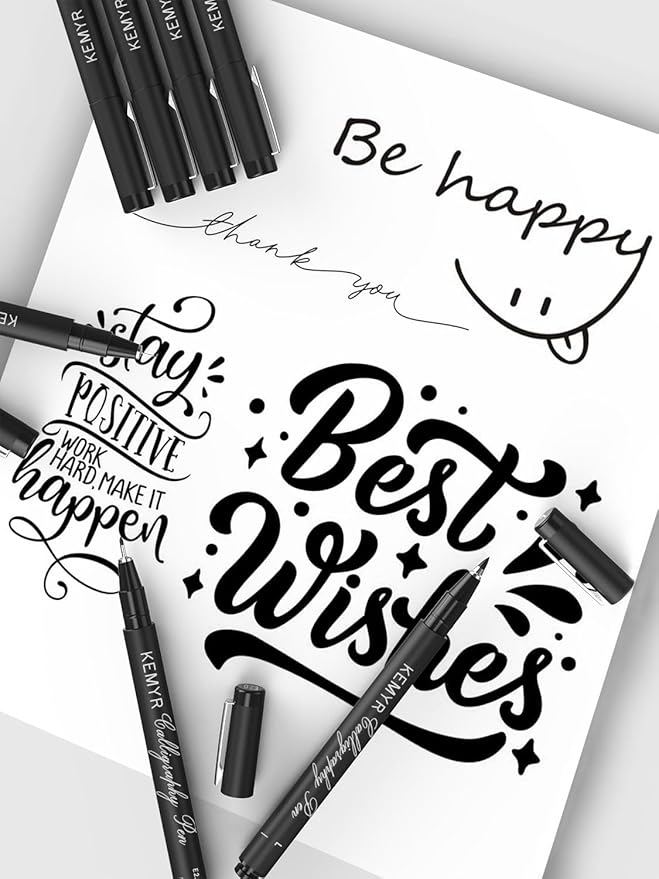 KEMYR
KEMYR
KEMYR
KEMYR
Be happy
thank you
KEMYR
stay
POSITIVE
WORK
HARD, MAKE IT
happen
Best
Wishes
KEMYR Calligraphy Pen
KEMYR Calligraphy Pen L